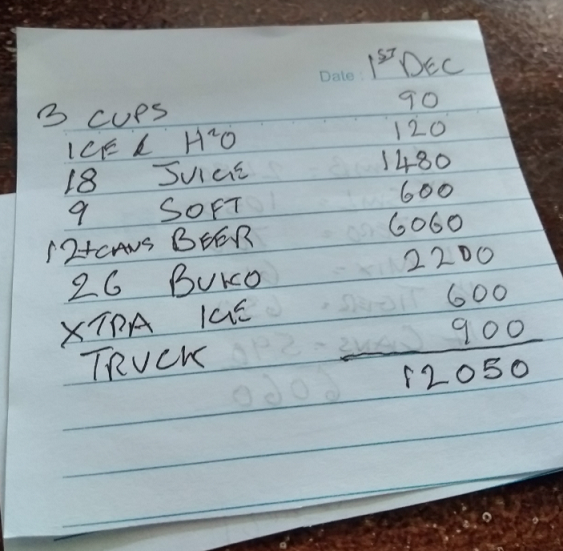 Date: 1ST DEC
3 CUPS 90
ICE & H2O 120
18 JUICE 1480
9 SOFT 600
12+CANS BEER 6060
26 BUKO 2200
XTRA ICE 600
TRUCK 900
12050